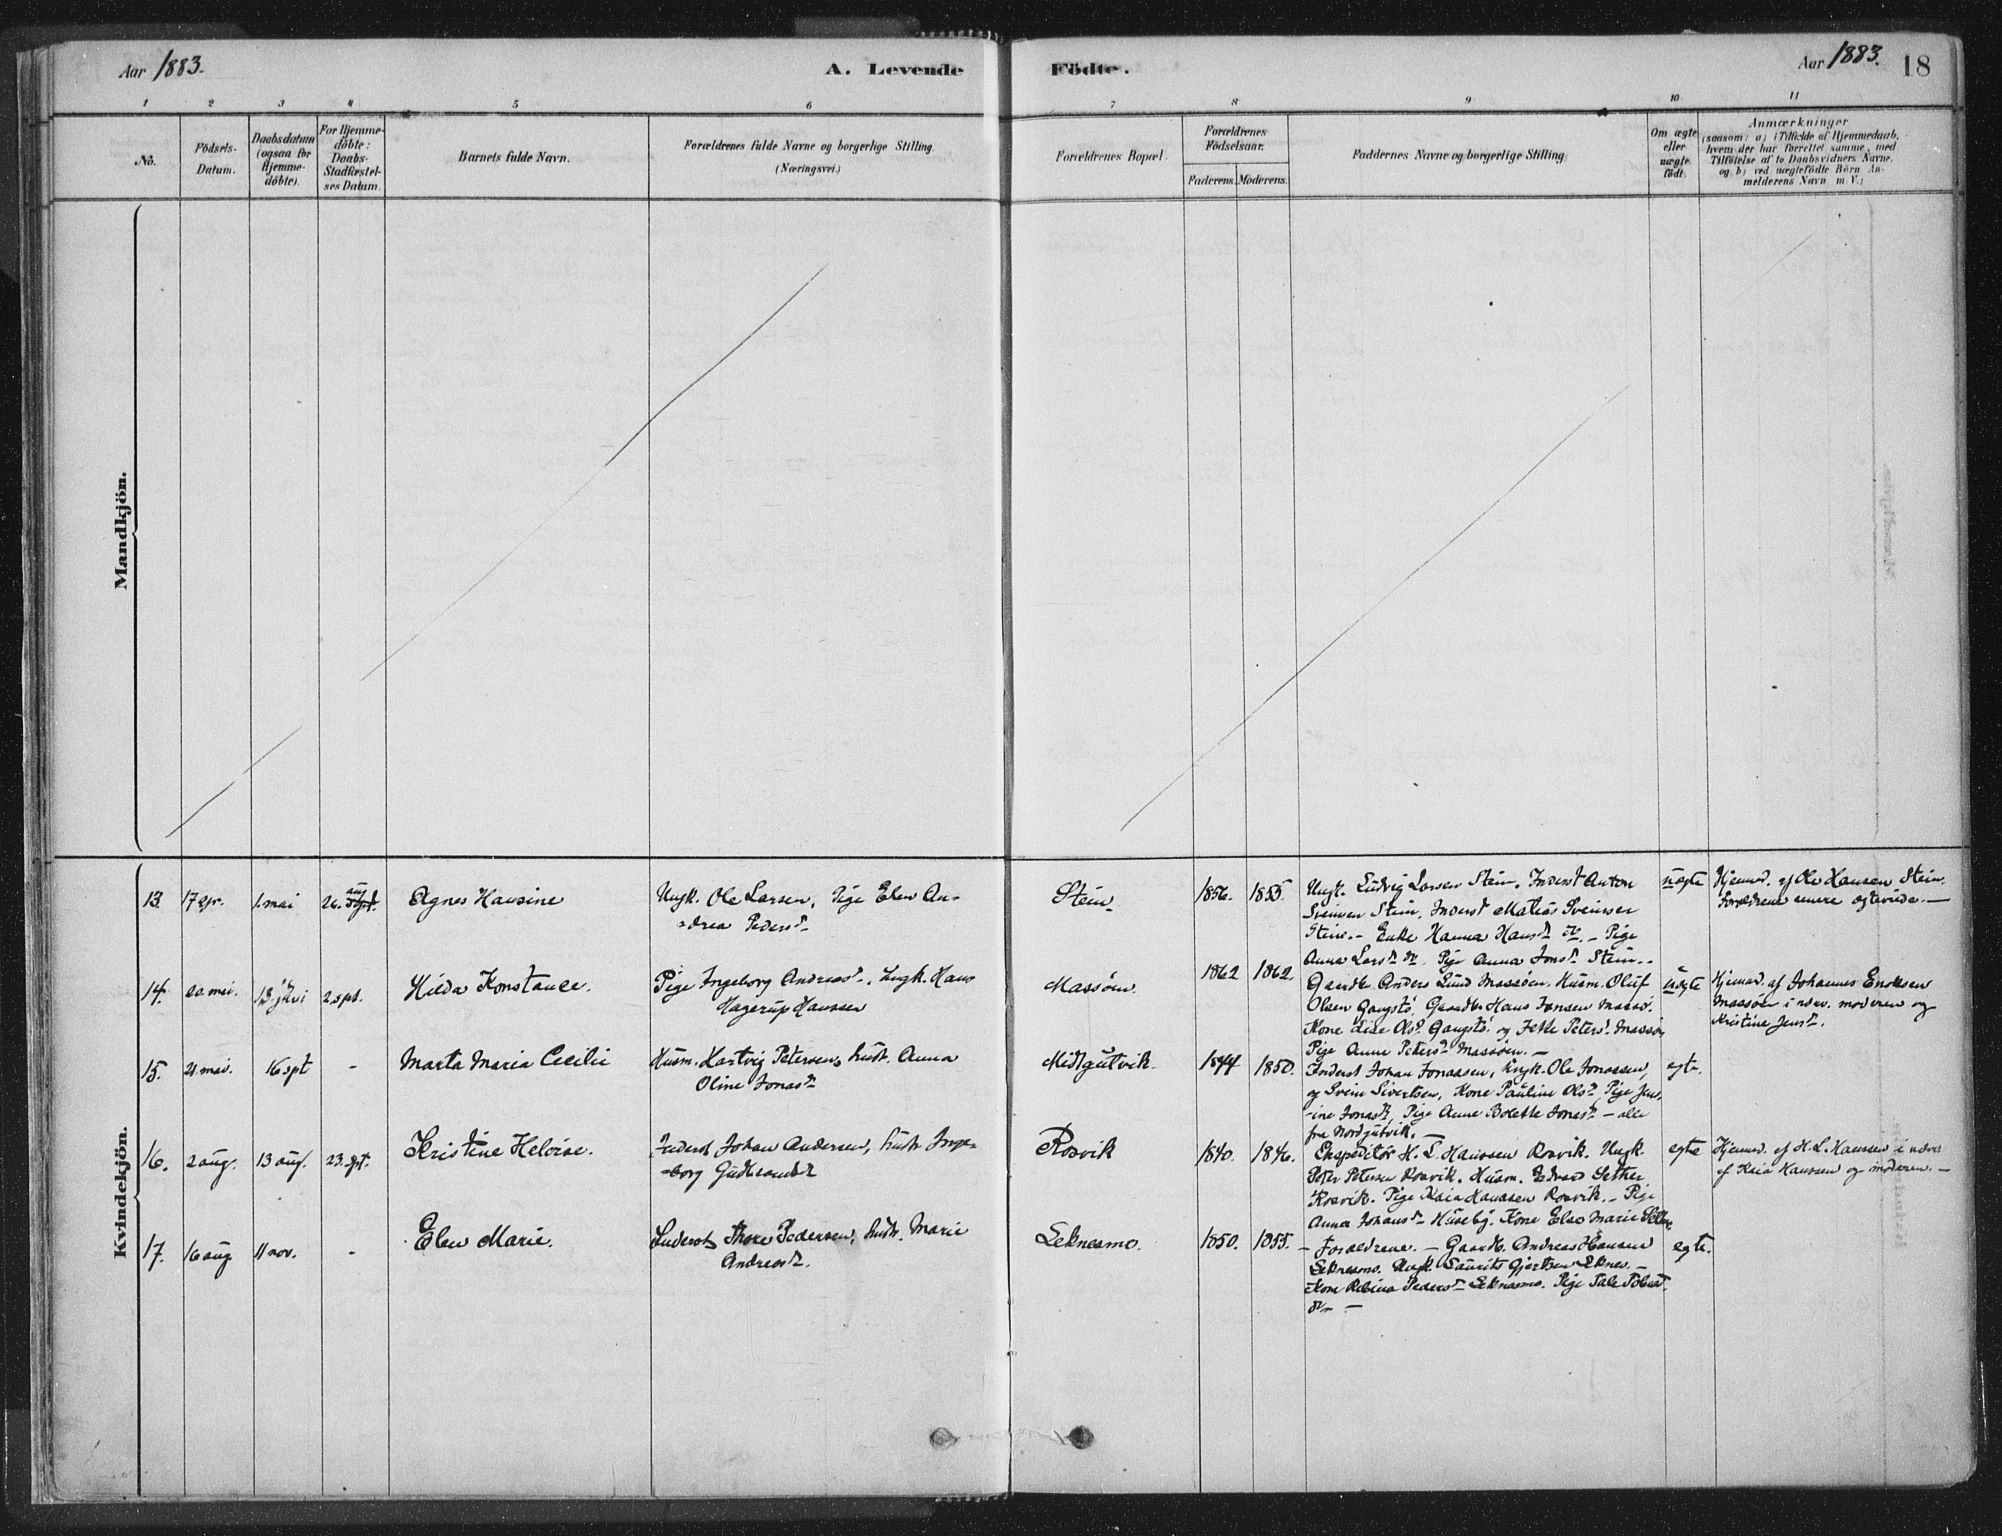 Aar 1883.
A. Levende Födte.
Aar 1883.
18
1 2 3 4 5 6 7 8 9 10 11
No.
Födsels-
Datum.
Daabsdatum
(ogsaa for
Hjemme-
döbte).
For Hjemme-
döbte:
Daabs-
Stadfæstel-
ses Datum.
Barnets fulde Navn.
Forældrenes fulde Navne og borgerlige Stilling
(Næringsvei.)
Forældrenes Bopæl.
Forældrenes
Födselsaar.
Faderens. Moderens.
Faddernes Navne og borgerlige Stilling
Om ægte
eller
uægte
födt.
Anmærkninger
(saasom: a) i Tilfælde af Hjemmedaab,
hvem der har forrettet samme, med
Tilföielse af to Daabsvidners Navne,
og b) ved uægtefödte Börn An-
melderens Navn m. V.)
Mandkjön.
Kvindekjön.
13. 17 apr. 1. mai 26. aug sept.
Agnes Hansine
Ungk. Ole Larsen, Pige Elen An-
drea Pedersd.
Stein
1856. 1855.
Ungk. Ludvig Larsen Stein, Inderst Anton
Svensen Stein, Inderst Matias Svensen
Stein. - Enke Hanna Hansd. - Pige
Anna Larsd. Pige Anna Jonsd. Stein. -
uægte
Hjemmed. af Ole Hansen Stein.
Forældrene senere ægteviede. -
14. 20. mai. 13. juni 2. spt.
Hilda Konstance.
Pige Ingeborg Andreasd., Ungk. Hans
Hagerup Hansen
Massøen.
1862 1862.
Gaardbr. Anders Lund Massøen. Husm. Oluf
Olsen Gangstø. Gaardbr. Hans Jensen Massø.
Kone Olsd. Gangstø. og Jette Petersd. Massøen
Pige Anne Petersd. Massøen. -
uægte
Hjemmed. af Johannes Enoksen
Massøen i nærv. moderen og
Kristine Jensd.
15. 21. mai. 16 spt -
Marta Maria Cecilie
Husm. Hartvig Petersen, hustr. Anna
Oline Jonasd.
Midtgutvik.
1844 1850.
Inderst Johan Jonassen, Ungk. Ole Jonassen,
og Svein Sivertsen, Kone Pauline Olsd, Pige Jens-
ine Jonasd, Pige Anne Bolette Jonasd - alle
fra Nordgutvik. -
egte.
16. 2 aug. 13 aug. 23. spt.
Kristine Heloise.
Inderst Johan Andersen, hustr. Inge-
borg Gudbrandsd
Rosvik
1840. 1846.
Ekspeditør H. L. Hanssen Rosvik. Ungk.
Peter Petersen Rosvik. Husm. Edvard Sether
Rosvik. Pige Kaia Hanssen Rosvik. - Pige
Anna Johansd. Huseby. Kone Else Marie
egte
Hjemmed. af H. L. Hanssen i nærv
af Kaia Hanssen og moderen. -
17. 16 aug 11 nov. -
Elen Marie.
Inderst Thore Pedersen, hustr. Marie
Andreasd.
Leknesmo.
1850. 1855.
- Forældrene. - Gaardb. Andreas Hansen
Leknesmo. Ungk. Laurits Gjertsen Leknes. -
Kone Rebina Pedersd Leknesmo. Pige Tale Tobiasd.
egte.